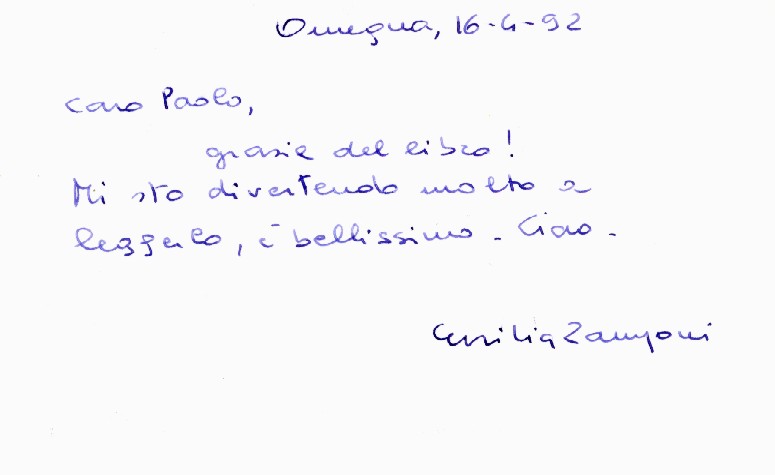 Omegna, 16-4-92
Caro Paolo,
grazie del libro!
Mi sto divertendo molto a
leggerlo, è bellissimo - Ciao -
Cecilia Zamponi